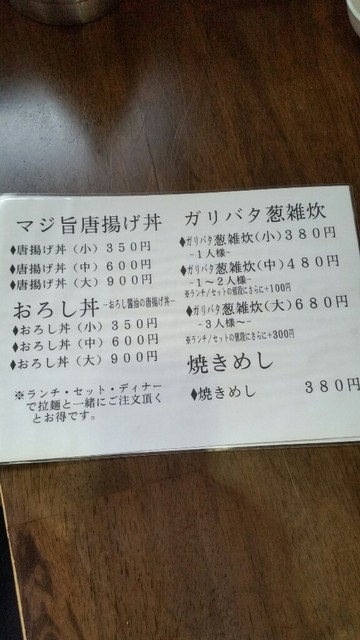 マジ旨唐揚げ丼
♦唐揚げ丼（小）３５０円
♦唐揚げ丼（中）６００円
♦唐揚げ丼（大）９００円
おろし丼-おろし醤油の唐揚げ丼-
♦おろし丼（小）３５０円
♦おろし丼（中）６００円
♦おろし丼（大）９００円
※ランチ・セット・ディナー
で拉麺と一緒にご注文頂く
とお得です。
ガリバタ葱雑炊
♦ガリバタ葱雑炊(小)３８０円
-１人様-
♦ガリバタ葱雑炊(中)４８０円
-１～２人様-
※ランチ/セットの値段にさらに+100円
♦ガリバタ葱雑炊(大)６８０円
-３人様～-
※ランチ/セットの値段にさらに+300円
焼きめし
♦焼きめし ３８０円